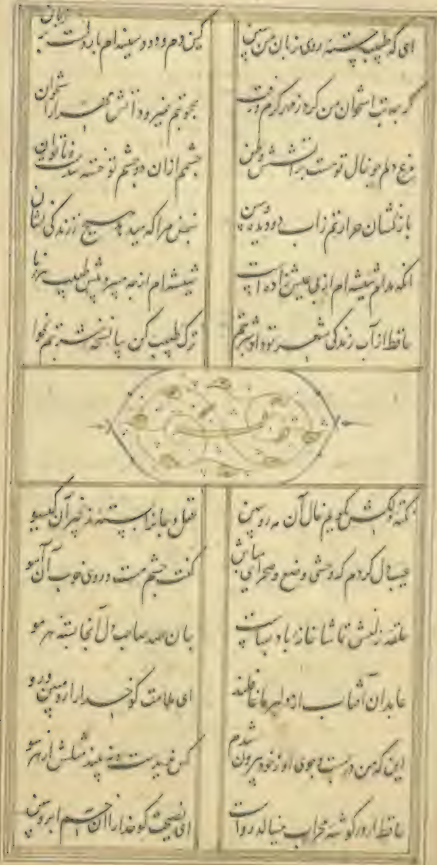 ای که طبیب خسته روی زبان من ببین کین دم و دود سینه ام بار دلست بر زبان
گرچه تب استخوان من کرد ز مهر گرم و رفت همچو تبم نمیرود آتش مهر از استخوان
مرغ دلم چو خال تو هست بر آتشش وطن چشمم ازان دو چشم تو خسته شدست و ناتوان
باز نشان حرارتم ز آب دو دیده و ببین نبض مرا که میدهد هیچ ز زندگی نشان
آنکه مدام شیشه ام از پی عیش داده است شیشه ام از چه میبرد پیش طبیب هر زمان
حافظ از آب زندگی شعر تو داد شربتم ترک طبیب کن بیا نسخه شربتم بخوان
نکته دلکش بگویم خال آن مه رو ببین عقل و جانرا بسته زنجیر آن گیسو
عیب دل کردم که وحشی وضع و هرجایی مباش گفت چشم مست و روی خوب آن آهو
حلقه زلفش تماشاخانه باد صباست جان صد صاحب دل آنجا بسته هر مو
عابدان آفتاب از دلبر ما غافلند ای ملامت گو خدا را رو مبین و رو
این که من در جست و جوی او ز خود بیرون شدم کس ندیدست و نبیند مثلش از هر سو
حافظ ار در گوشه محراب مینالد رواست ای نصیحت گو خدا را آن خم ابرو ببین